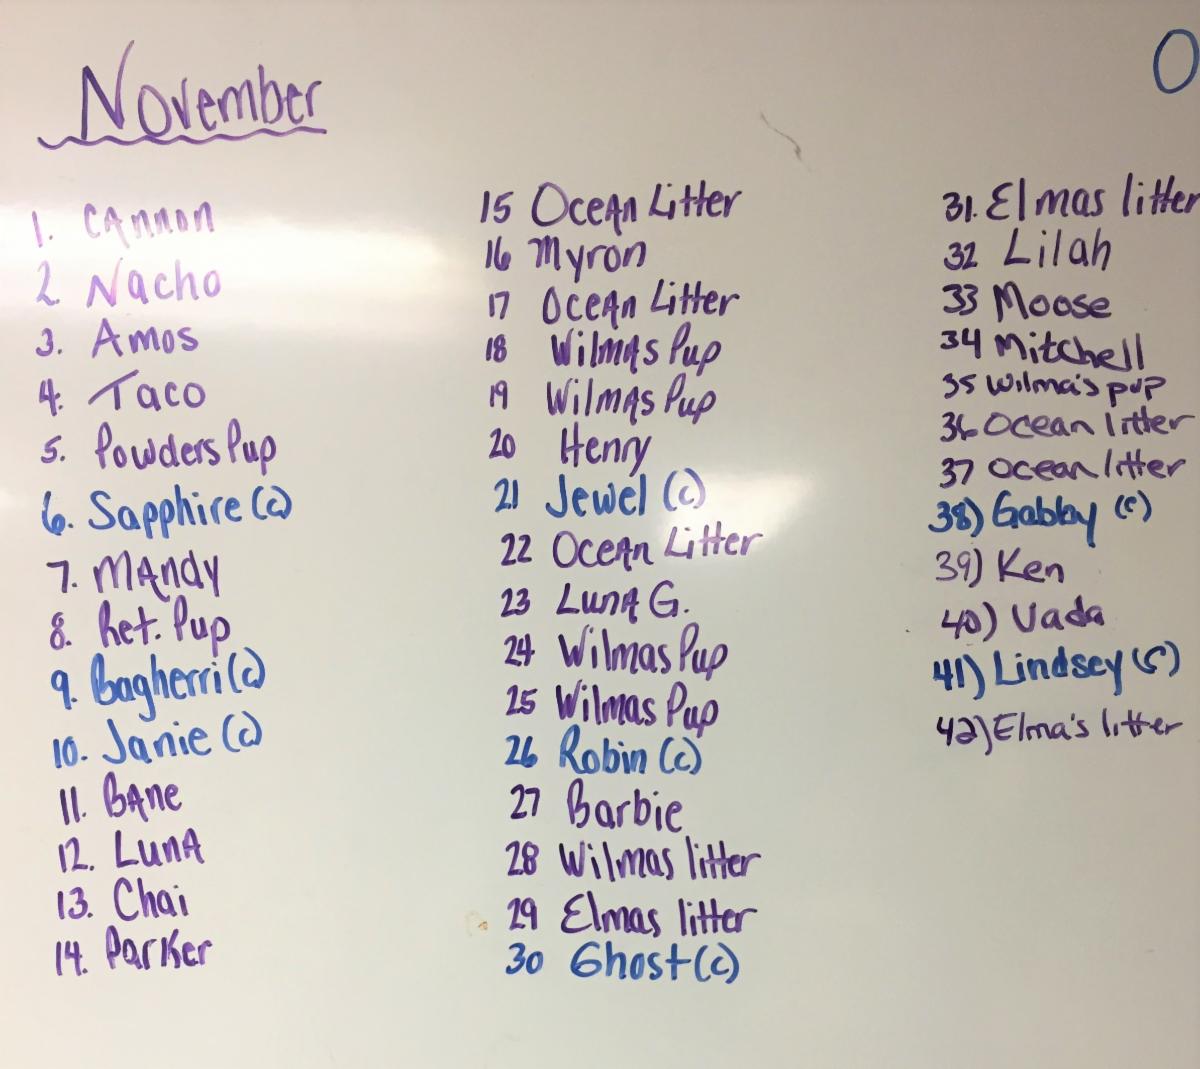 November
O
1. Cannon
2. Nacho
3. Amos
4. Taco
5. Powders Pup
6. Sapphire (c)
7. Mandy
8. Ret. Pup
9. Bagherri (c)
10. Janie (c)
11. Bane
12. Luna
13. Chai
14. Parker
15 Ocean Litter
16 Myron
17 Ocean Litter
18 Wilmas Pup
19 Wilmas Pup
20 Henry
21 Jewel (c)
22 Ocean Litter
23 Luna G.
24 Wilmas Pup
25 Wilmas Pup
26 Robin (c)
27 Barbie
28 Wilmas litter
29 Elmas litter
30 Ghost (c)
31. Elmas litter
32 Lilah
33 Moose
34 Mitchell
35 Wilma's pup
36 Ocean litter
37 Ocean litter
38) Gabby (c)
39) Ken
40) Vada
41) Lindsey (c)
42) Elma's litter